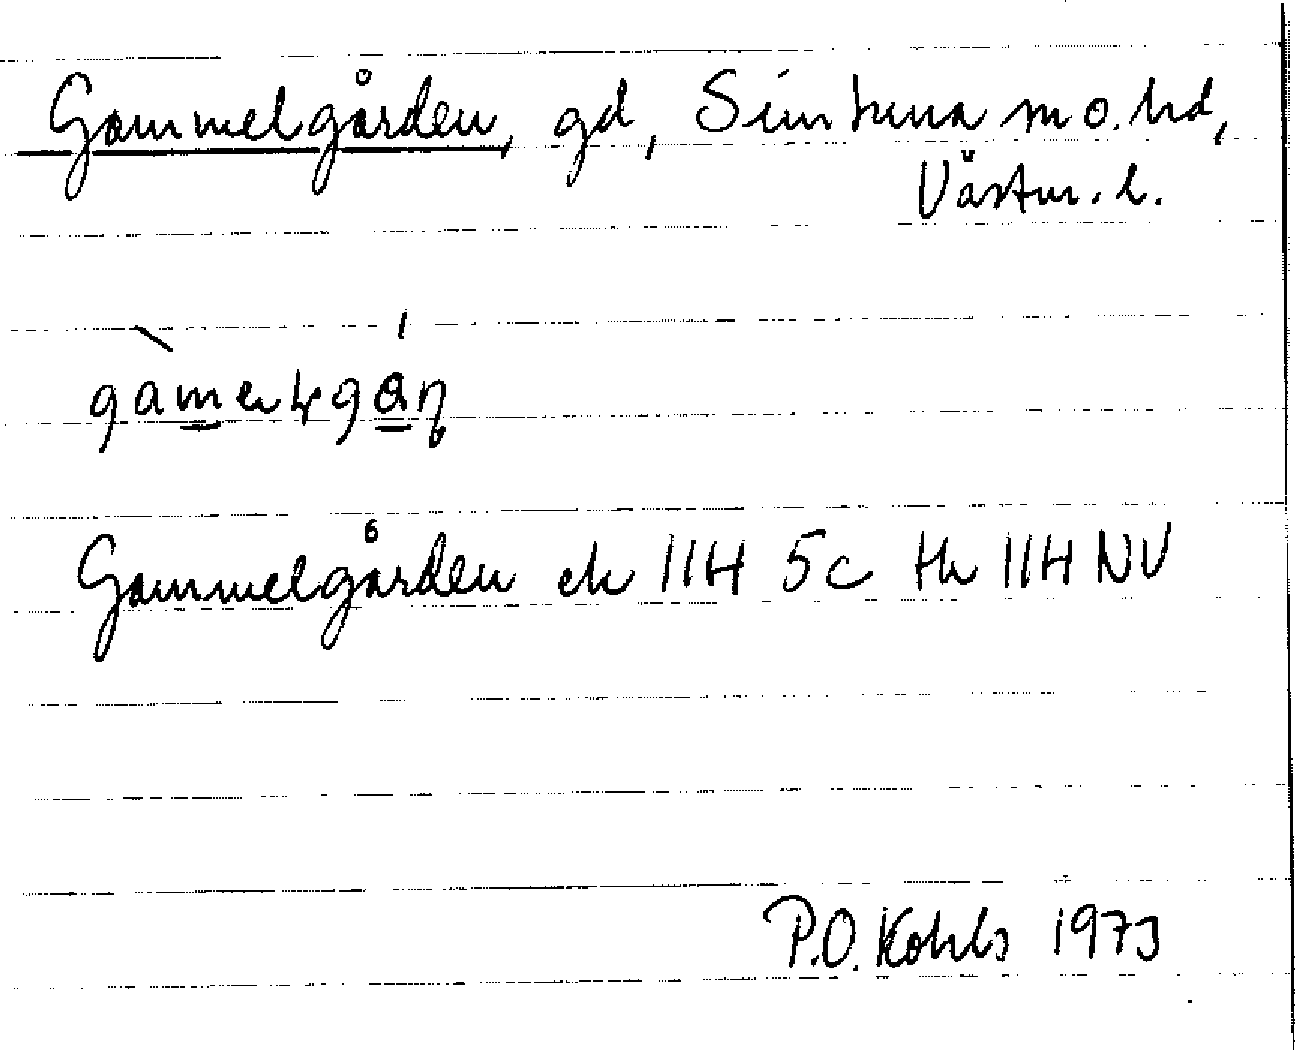 Gammelgården, gd, Simtuna sn o. hd,
Västm. l.
Gammelgården ek 11H 5c tk 11H NV
P.O. Kohls 1973